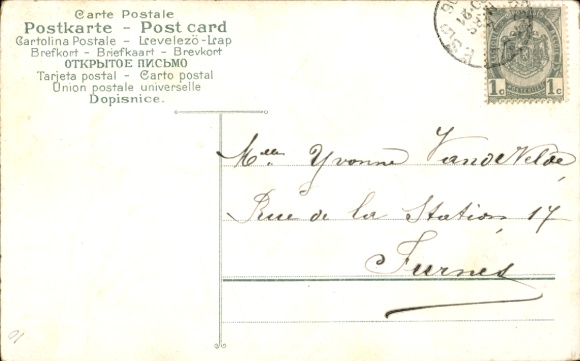 Carte Postale
Postkarte - Post card
Cartolina Postale - Levelező-Lap
Brefkort - Briefkaart - Brevkort
ОТКРЫТОЕ ПИСЬМО
Tarjeta postal - Carto postal
Union postale universelle
Dopisnice.
1c 1c
Mlle Yvonne VandeVelde,
Rue de la Station, 17
Furnes